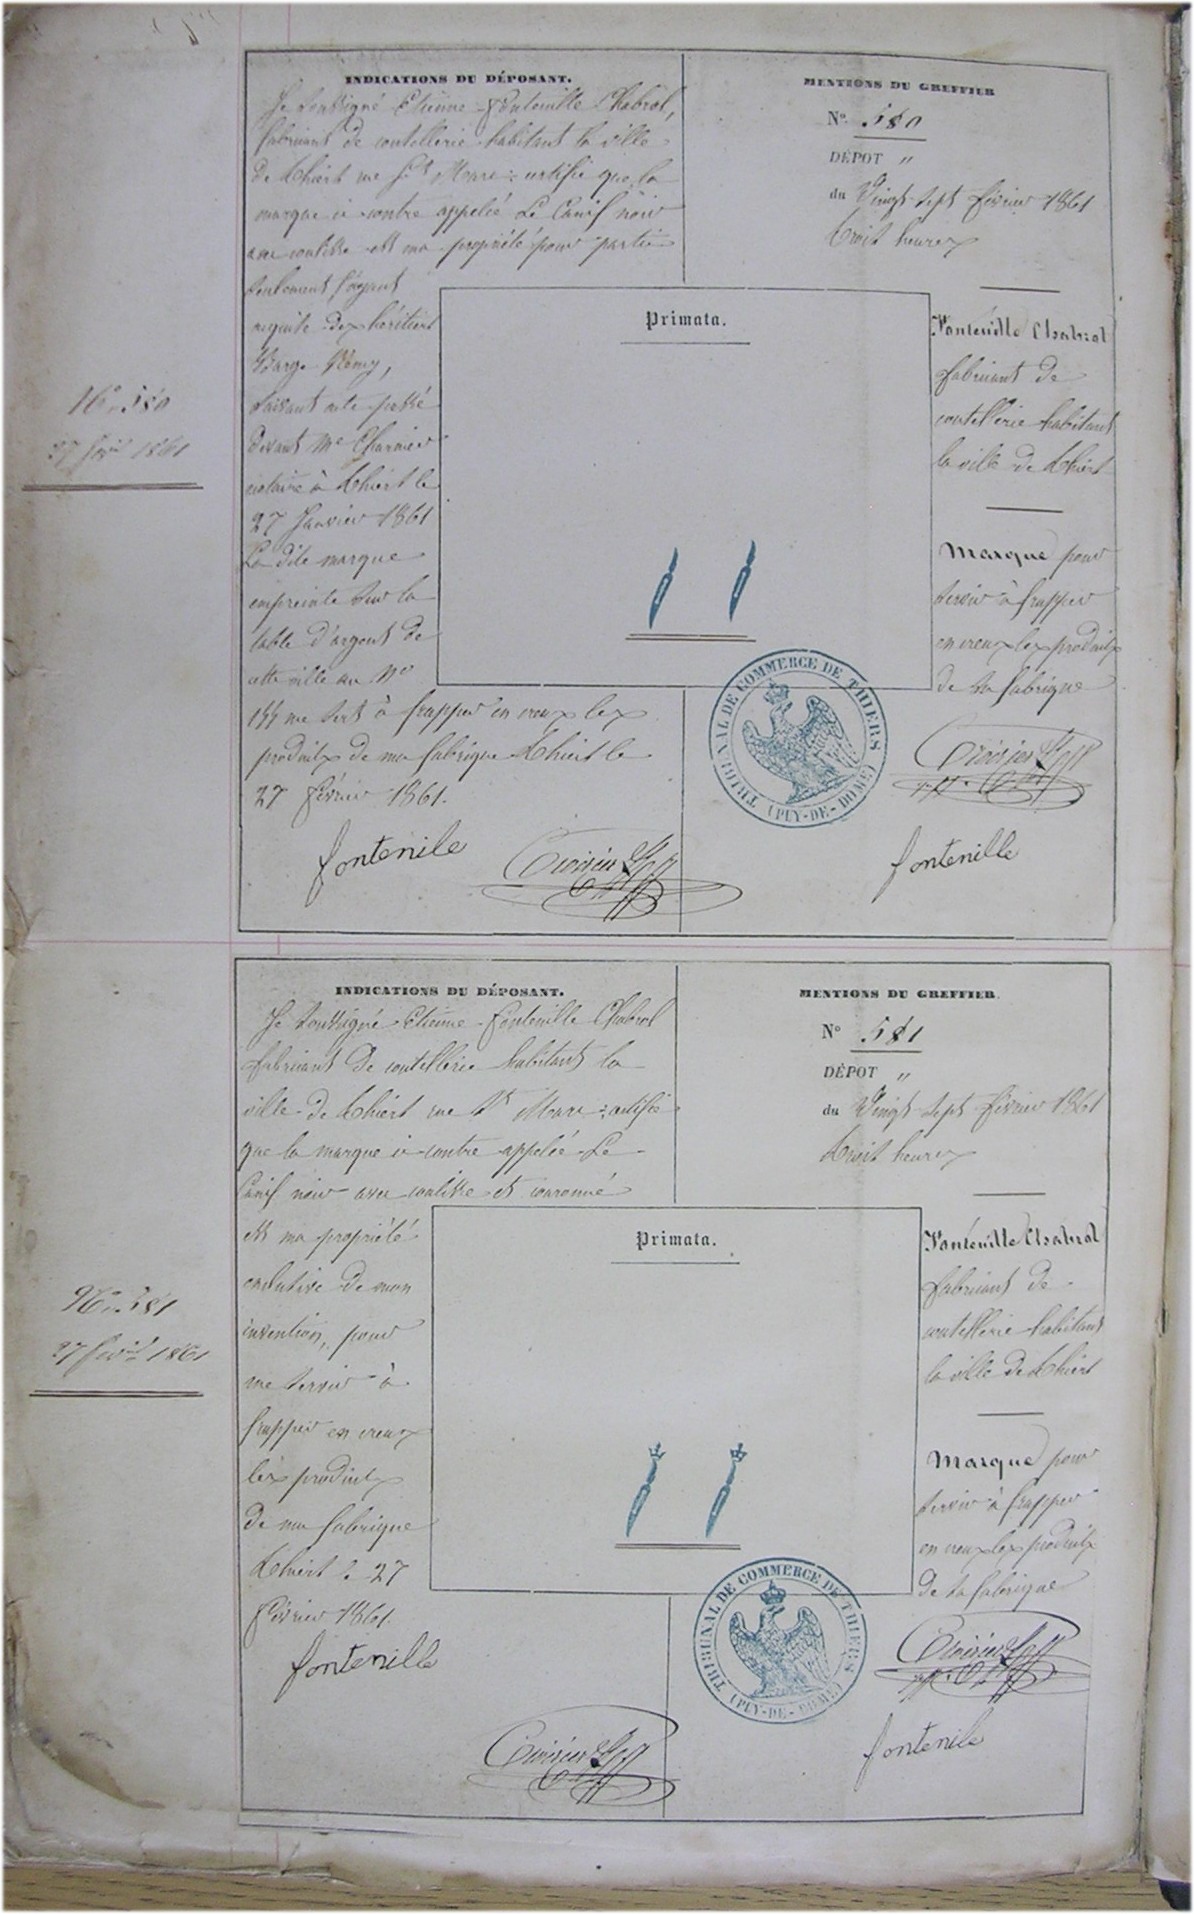 N° 580
27 fév. 1861
INDICATIONS DU DÉPOSANT.
Je soussigné Etienne Fontenille Chabrol,
fabricant de coutellerie habitant la ville
de Thiers rue St Marc : certifie que la
marque ci contre appelée Le Canif noir
avec coulisse est ma propriété pour partie
seulement l'ayant
acquise des héritiers
Barge Rémy,
suivant acte passé
devant Me
notaire à Thiers le
27 Janvier 1861
La dite marque
empreinte sur la
table d'argent de
cette ville au No
me sert à frapper en creux les
produits de ma fabrique Thiers le
27 Février 1861.
fontenile
MENTIONS DU GREFFIER
N° 580
DÉPOT "
du Vingt sept février 1861
trois heures
Primata.
Fontenille Chabrol
fabricant de
coutellerie habitant
la ville de Thiers
Marque pour
servir à frapper
en creux les produits
de sa fabrique
TRIBUNAL DE COMMERCE DE THIERS
(PUY-DE-DOME)
fontenille
N° 581
27 fév. 1861
INDICATIONS DU DÉPOSANT.
Je soussigné Etienne Fontenille Chabrol
fabricant de coutellerie habitant la
ville de Thiers rue St Marc : certifie
que la marque ci contre appelée Le
Canif noir avec coulisse et couronné
est ma propriété
exclusive de mon
invention, pour
me servir à
frapper en creux
les produits
de ma fabrique
Thiers le 27
Février 1861.
fontenille
MENTIONS DU GREFFIER
N° 581
DÉPOT "
du Vingt sept février 1861
trois heures
Primata.
Fontenille Chabrol
fabricant de
coutellerie habitant
la ville de Thiers
Marque pour
servir à frapper
en creux les produits
de sa fabrique
TRIBUNAL DE COMMERCE DE THIERS
(PUY-DE-DOME)
fontenile